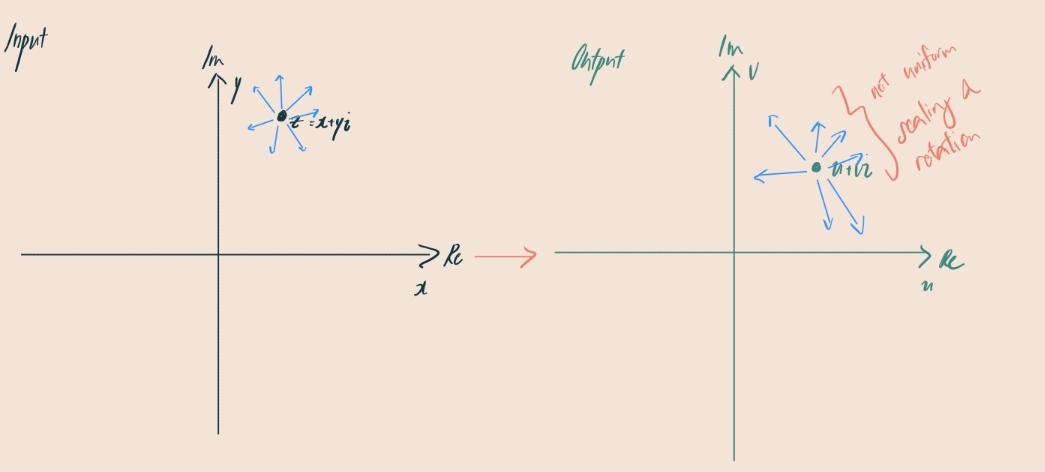 Input
Im
y
z = x+yi
Re
x
Output
Im
v
u+vi
Re
u
not uniform
scaling a
rotation